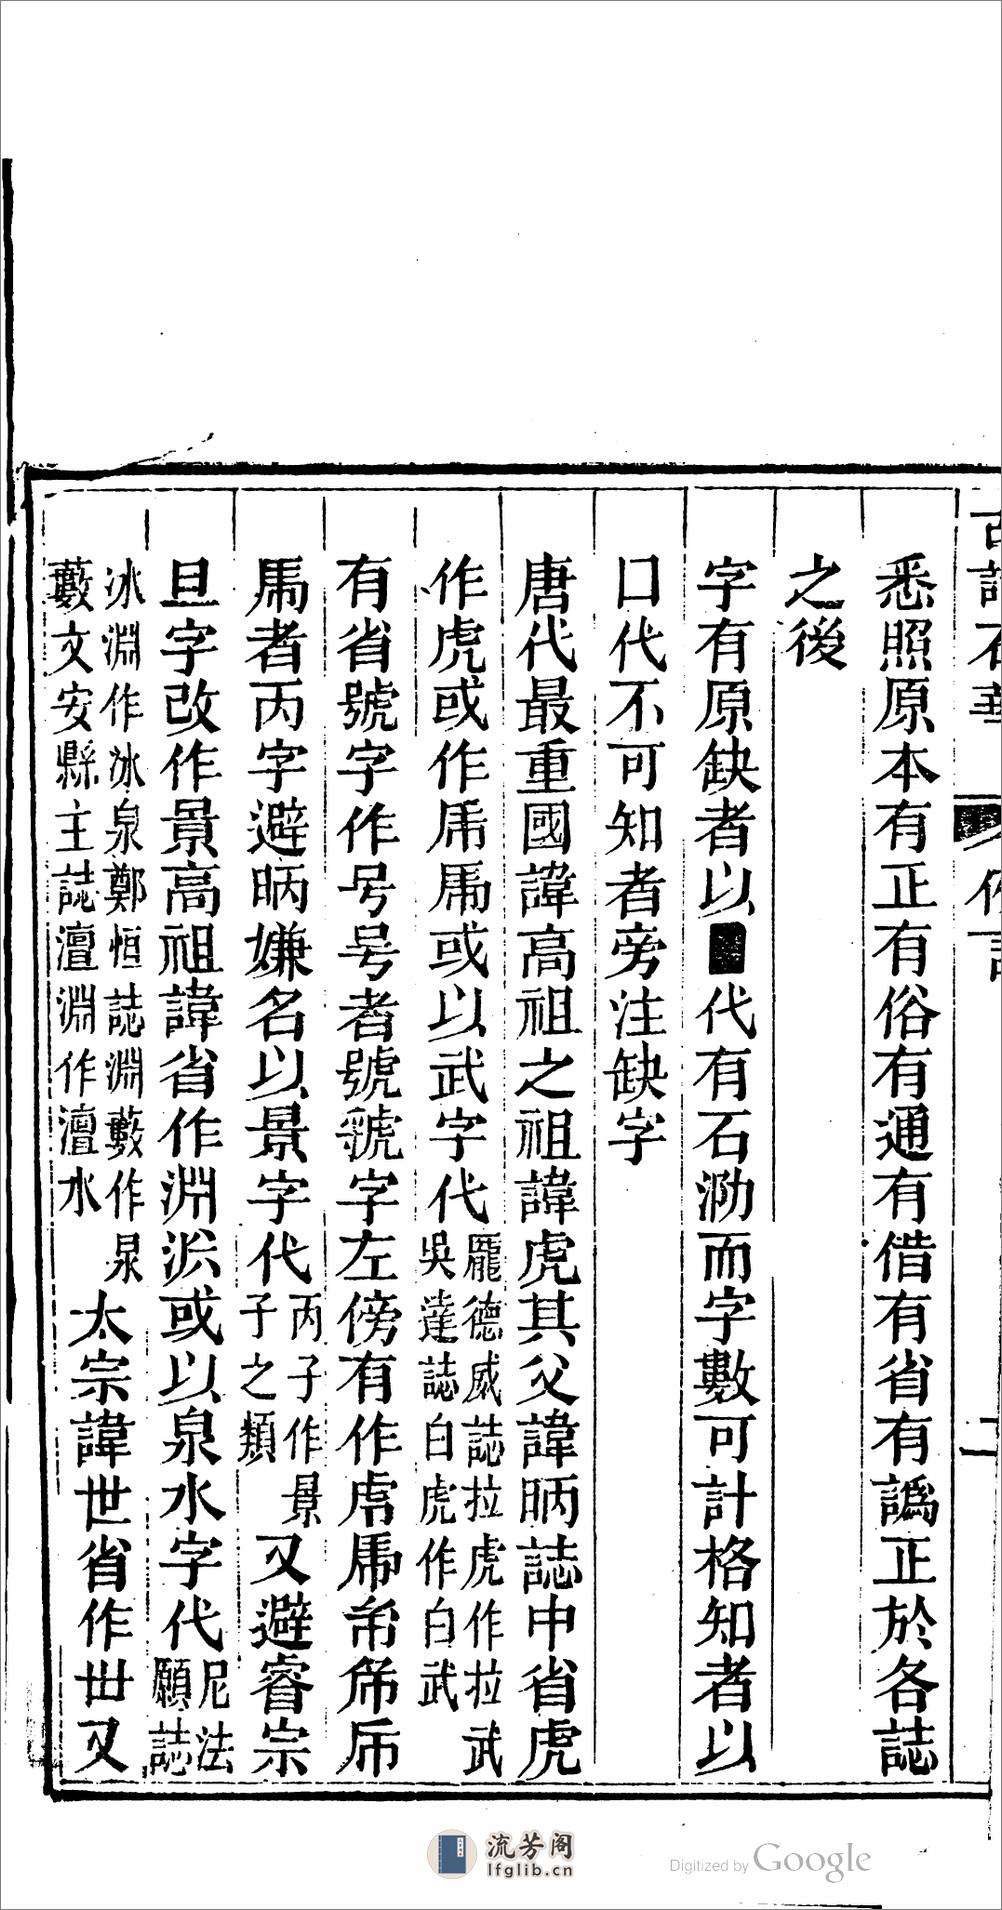 悉照原本有正有俗有通有借有省有譌正於各誌
之後
字有原缺者以■代有石泐而字數可計格知者以
口代不可知者旁注缺字
唐代最重國諱高祖之祖諱虎其父諱昞誌中省虎
作虎或作乕乕或以武字代龎德威誌拉虎作拉武吳達誌白虎作白武
有省號字作号号者號號字左傍有作虍乕
馬者丙字避昞嫌名以景字代丙子作景子之類又避睿宗
旦字改作景高祖諱省作淵㳙或以泉水字代尼法願誌
冰淵作冰泉鄭恒誌淵藪作泉藪文安縣主誌澶淵作澶水太宗諱世省作丗又
流芳阁
lfglib.cn
Digitized by Google